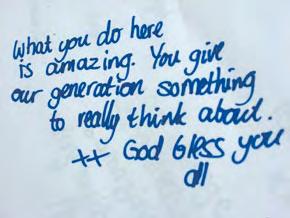 What you do here
is amazing. You give
our generation something
to really think about.
++ God bless you
all